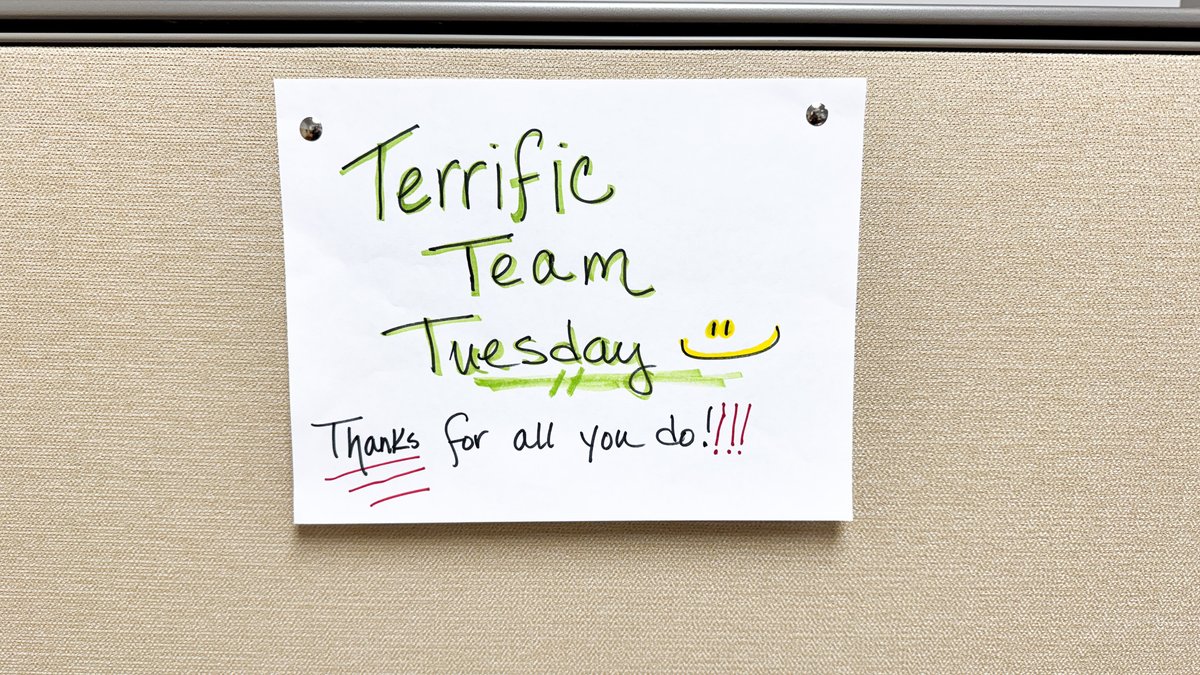 Terrific
Team
Tuesday
Thanks for all you do!!!!